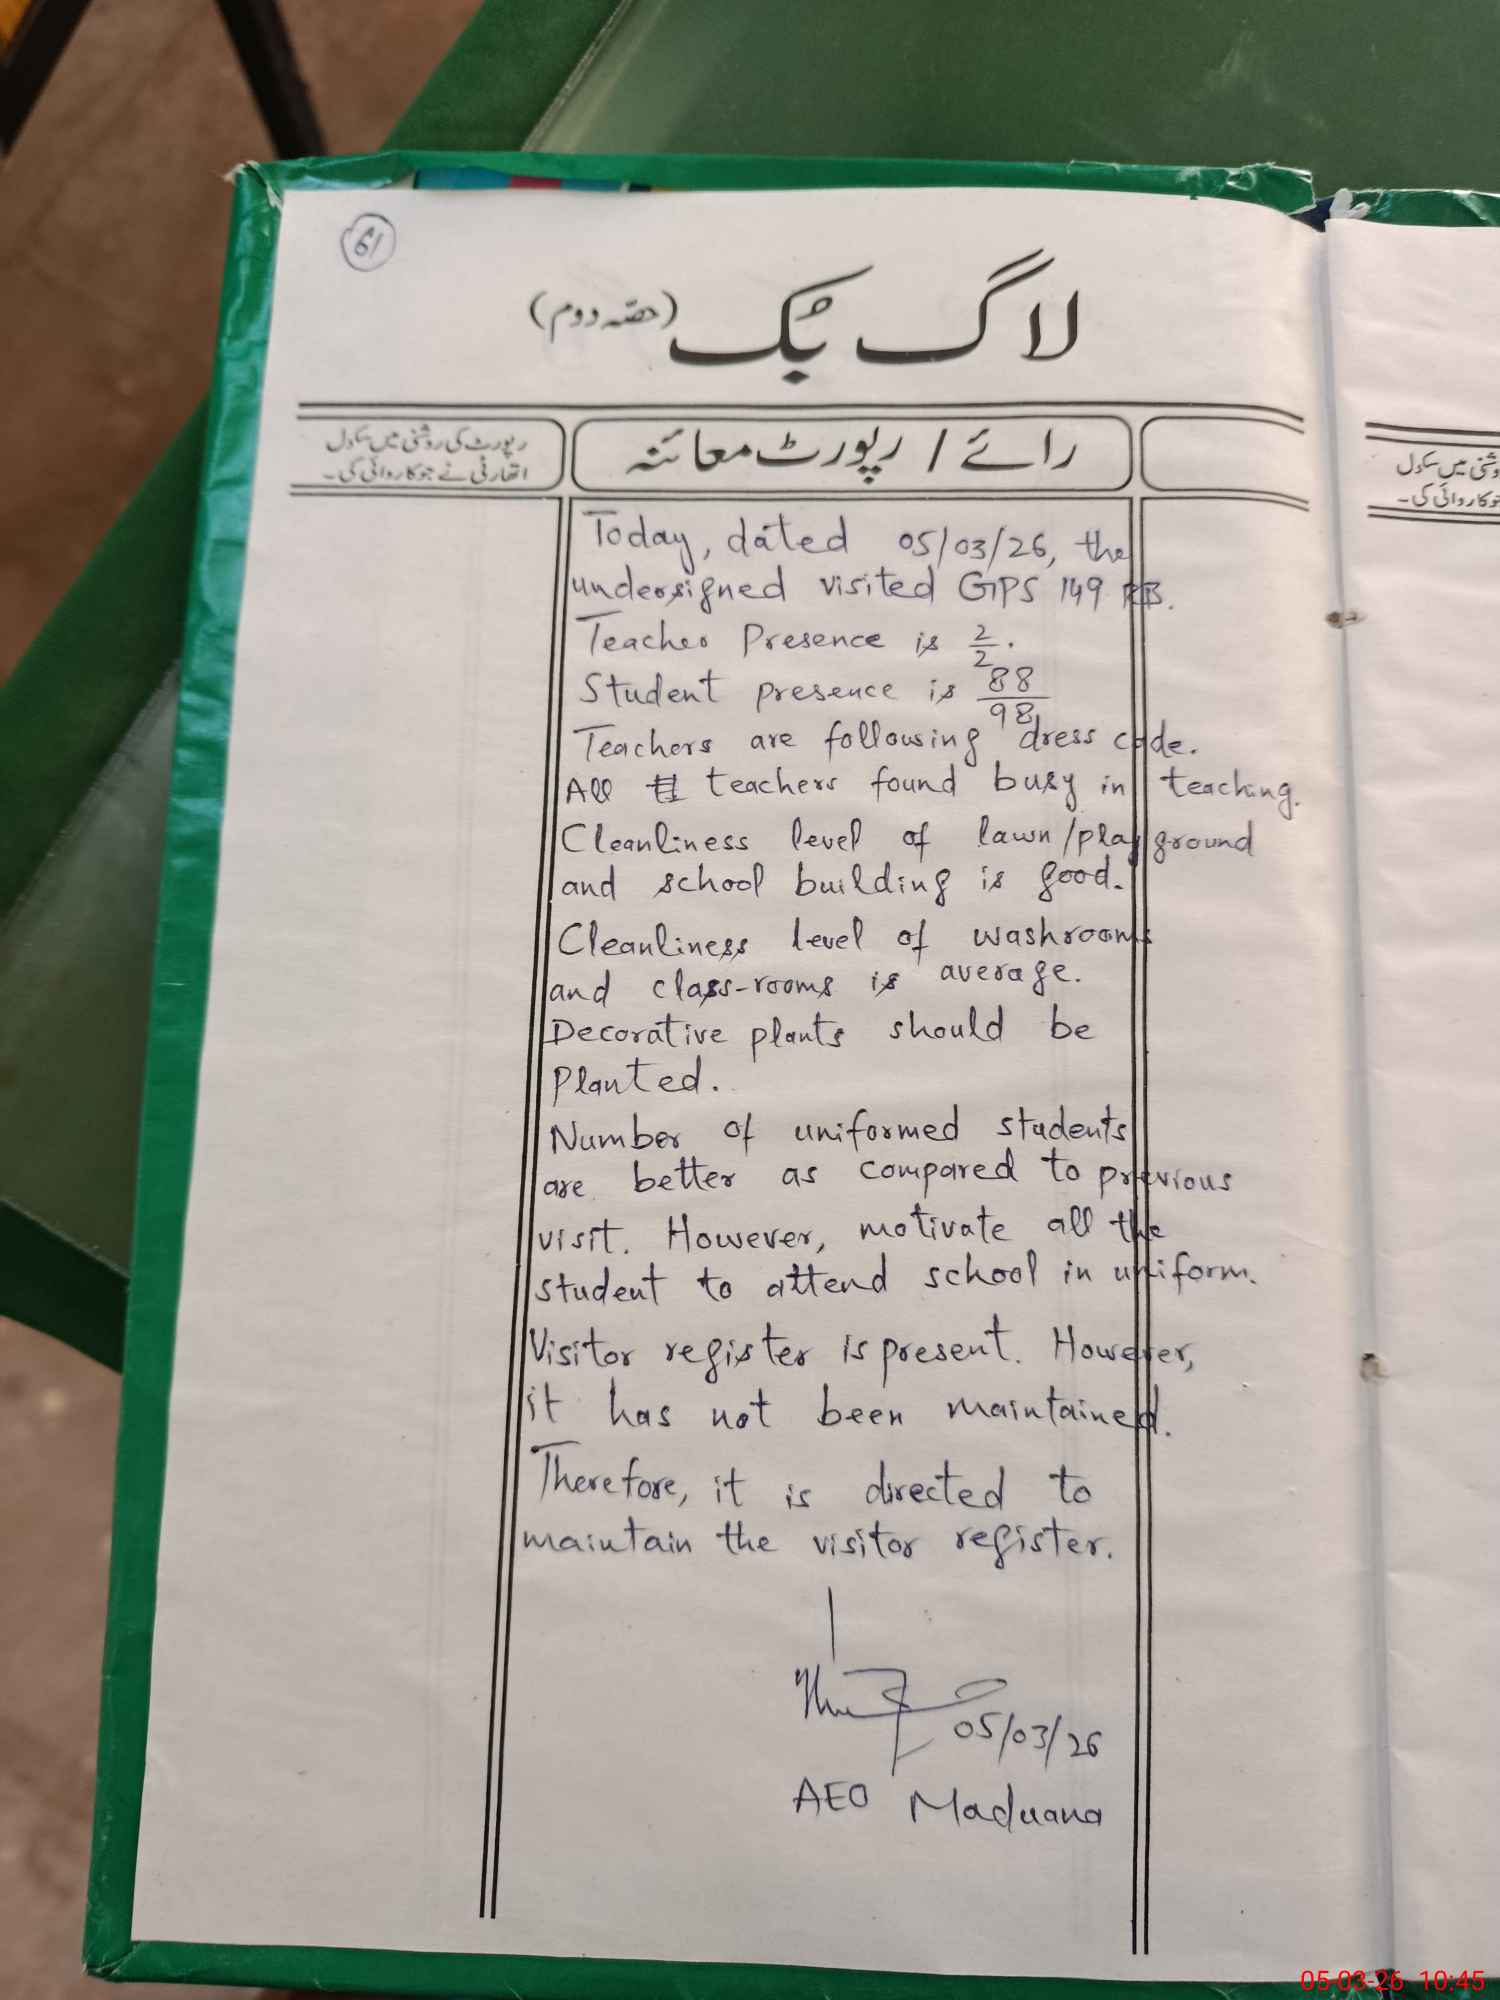 61
لاگ بُک (حصّہ دوم)
رپورٹ کی روشنی میں سکول
اتھارٹی نے جو کاروائی کی۔
رائے / رپورٹ معائنہ
وشنی میں سکول
جو کاروائی کی۔
Today, dated 05/03/26, the
undersigned visited GPS 149 RB.
Teacher Presence is 2/2.
Student presence is 88/98
Teachers are following dress code.
All teachers found busy in teaching.
Cleanliness level of lawn/playground
and school building is good.
Cleanliness level of washrooms
and class-rooms is average.
Decorative plants should be
Planted.
Number of uniformed students
are better as compared to previous
visit. However, motivate all the
student to attend school in uniform.
Visitor register is present. However,
it has not been maintained.
Therefore, it is directed to
maintain the visitor register.
05/03/26
AEO Maduana
05-03-26 10:45